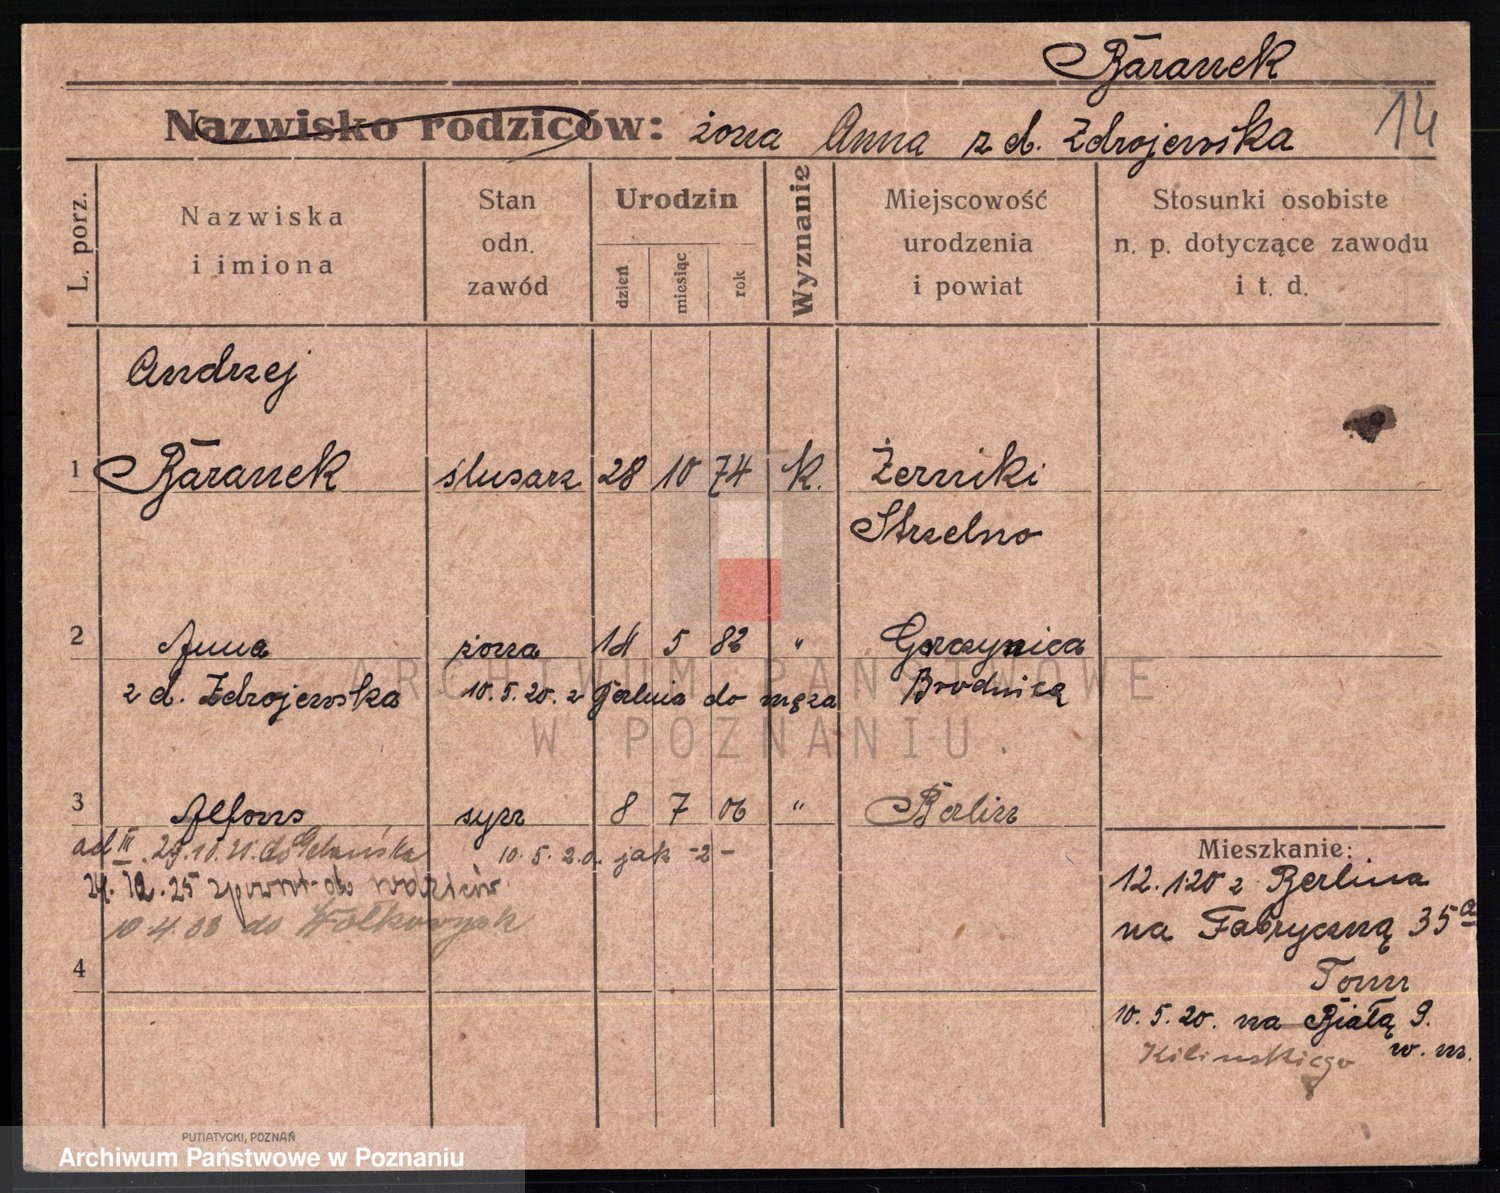 Baranek
Nazwisko rodziców: żona Anna z d. Zdrojewska 14
L. porz.
Nazwiska
i imiona
Stan
odn.
zawód
Urodzin
dzień
miesiąc
rok
Wyznanie
Miejscowość
urodzenia
i powiat
Stosunki osobiste
n. p. dotyczące zawodu
i t. d.
Andrzej
1 Baranek ślusarz 28 10 74 k. Żerniki
Strzelno
2 Anna żona 14 5 82 " Gorczynica
z d. Zdrojewska 10.5.20. z Berlina do męża Brodnica
3 Alfons syn 8 7 06 " Berlin
ad III. 29.10.21. do Gdańska 10.5.20. jak -2-
24.12.25 zpowrt. do rodziców
10.4.33 do Wołkowysk
4
Mieszkanie:
12.1.20 z Berlina
na Fabryczną 35a
Tomn
10.5.20. na Białą 9.
Kilinskiego w. m.
ARCHIWUM PAŃSTWOWE
W POZNANIU
PUTIATYCKI, POZNAŃ
Archiwum Państwowe w Poznaniu